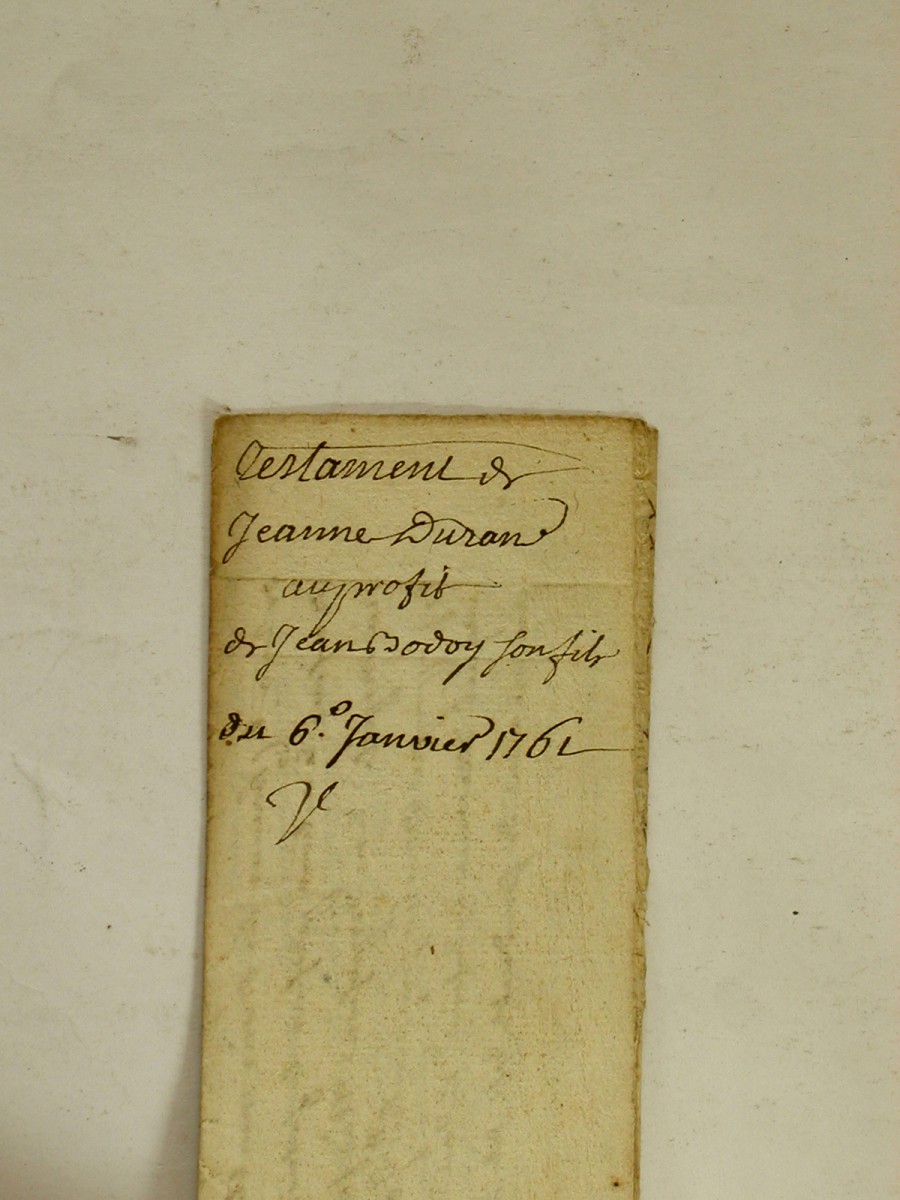 Testament de
Jeanne Duran
au profit
de Jean Bodoy son fils
du 6.º Janvier 1761